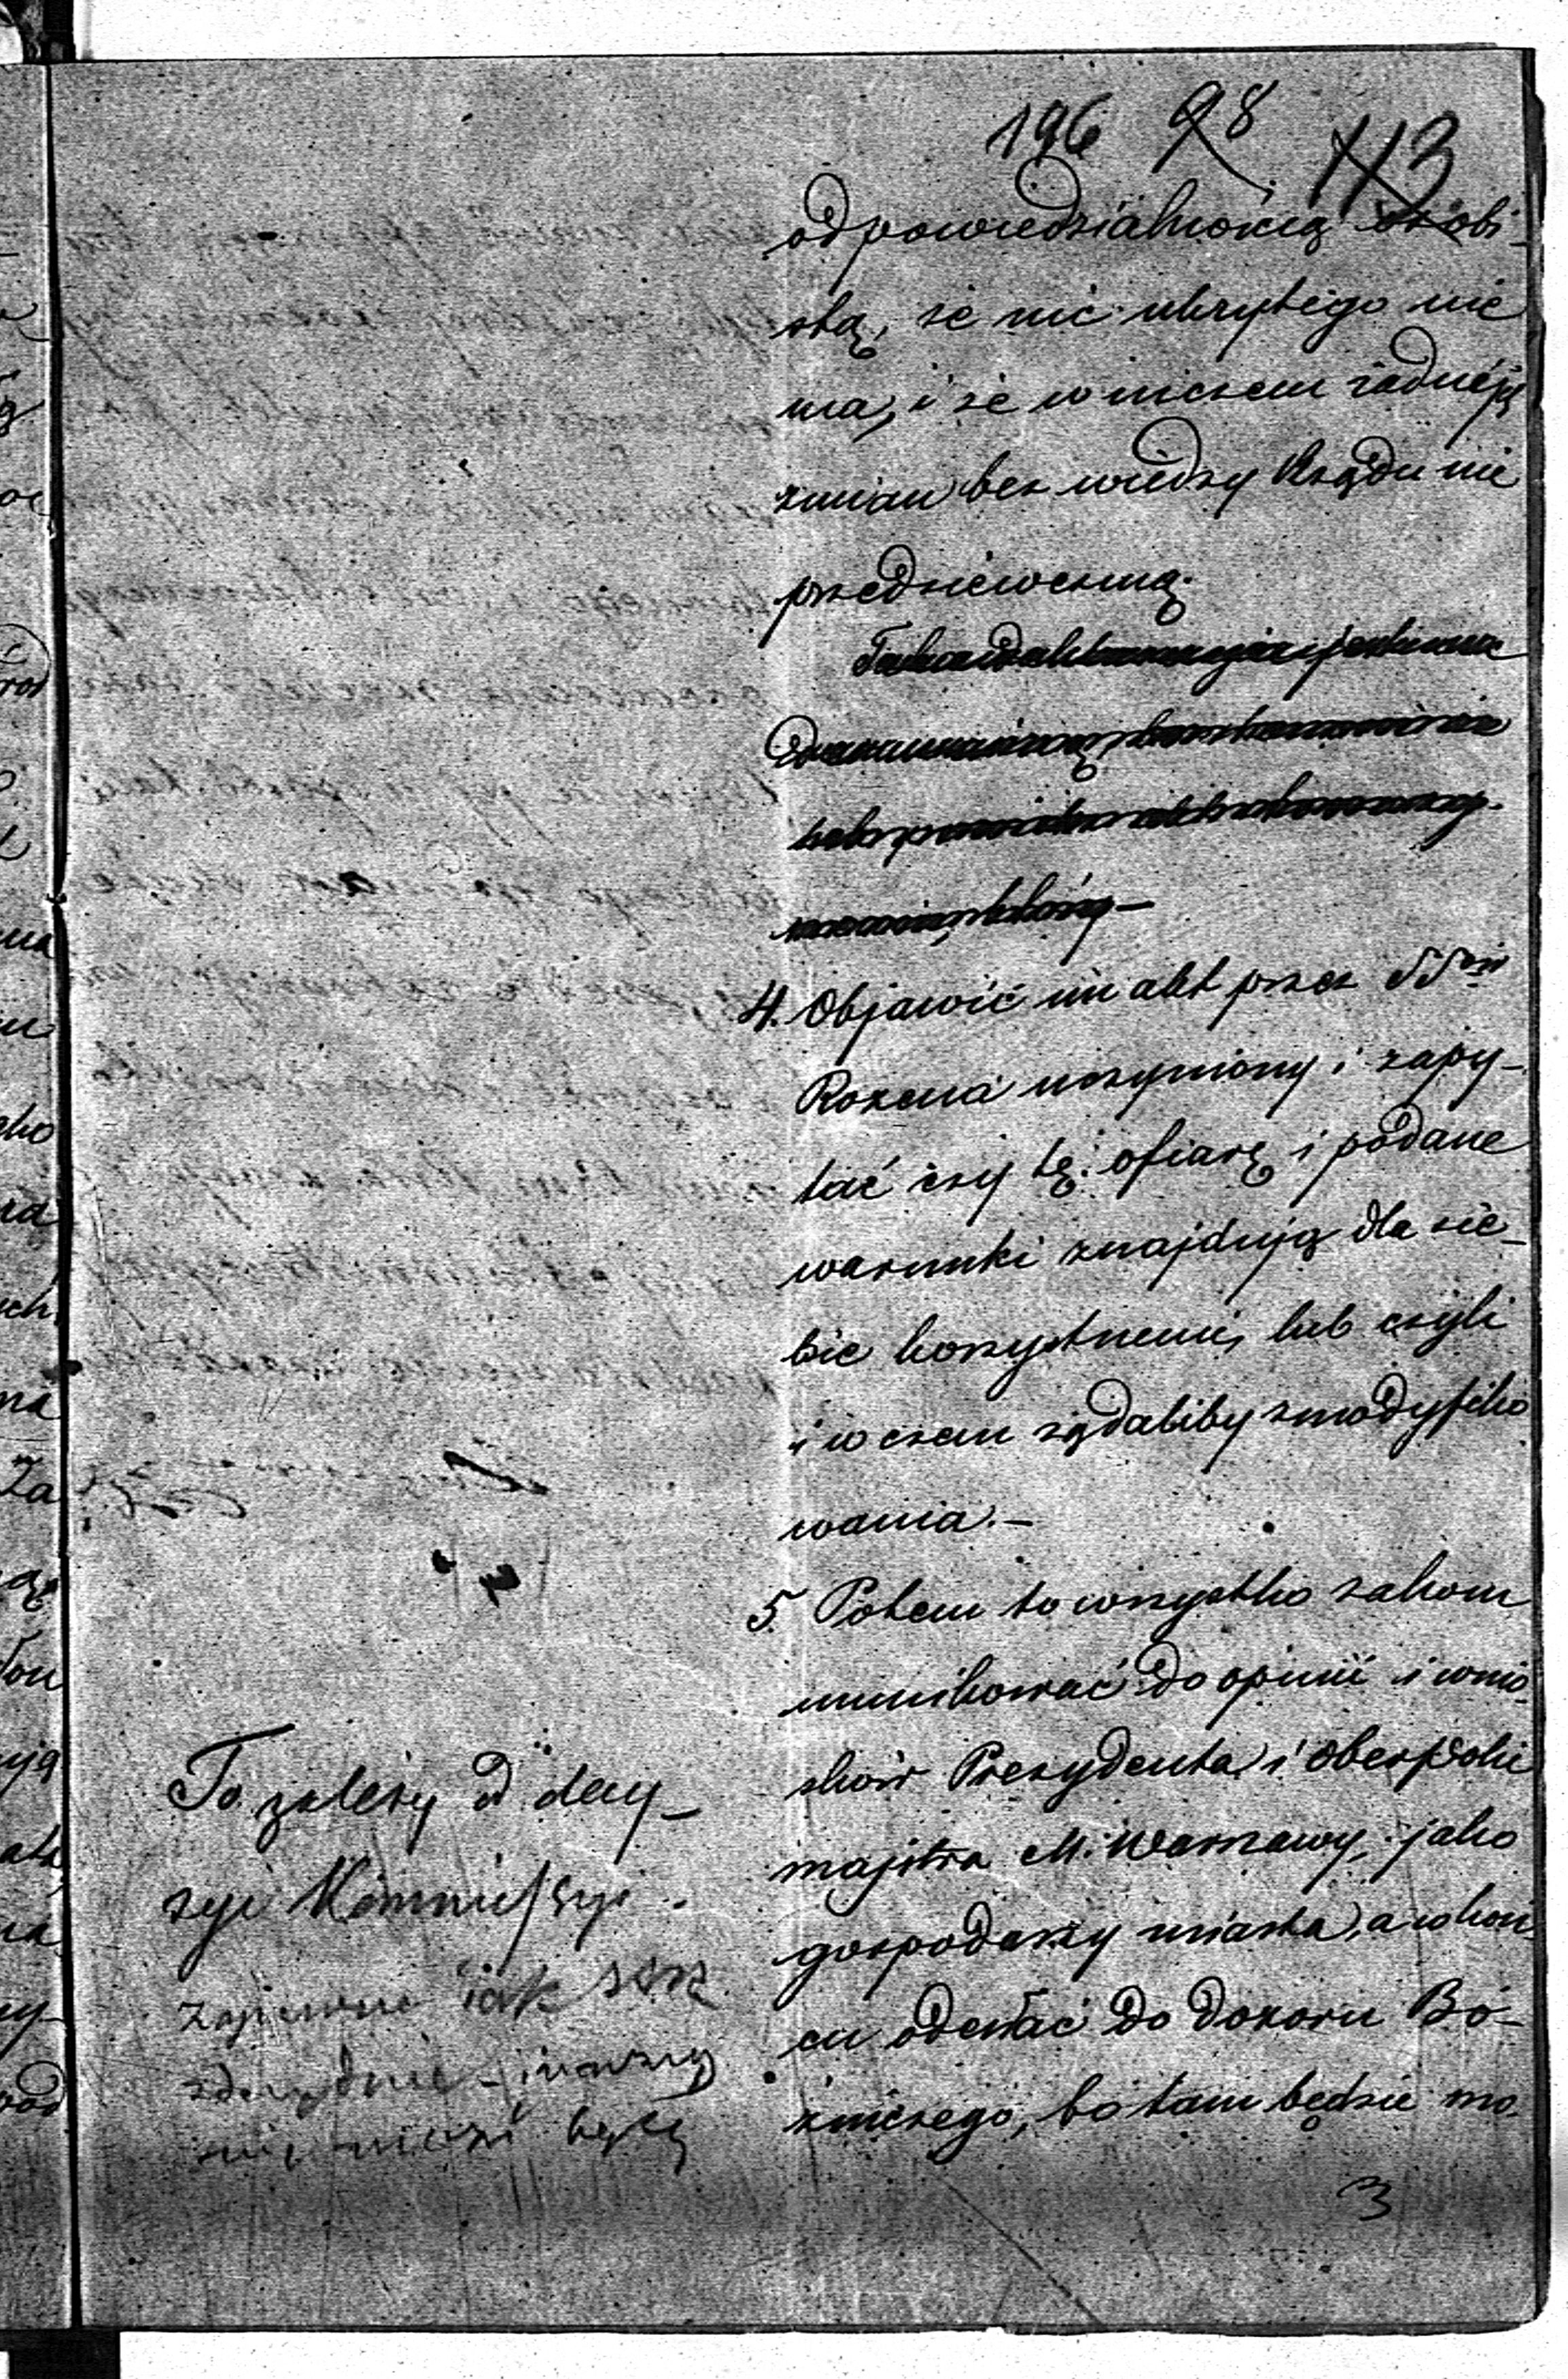 196 98 113
odpowiedzialnością osobi-
stą, że nic ukrytego nie
ma, i że w niczem żadnéj
zmian bez wiedzy Rządu nie
przedsiewezmą.
4. Objawić im akt przez SSów
Rozena uczyniony i zapy-
tać czy tę ofiarę i podane
warunki znajdują dla sie-
bie korzystnemi, lub czyli
i w czem żądaliby zmodyfiko
wania.-
5. Potem to wszystko zakom
munikować do opinii i wnio-
sków Prezydenta i Oberpolic
majstra M. Warszawy, jako
gospodarzy miasta, a w koń
cu odesłać do Dozoru Bó-
żniczego, bo tam będzie mo-
3
To zależy od decy-
zyi Kommissyi.
zapewne iak
będą